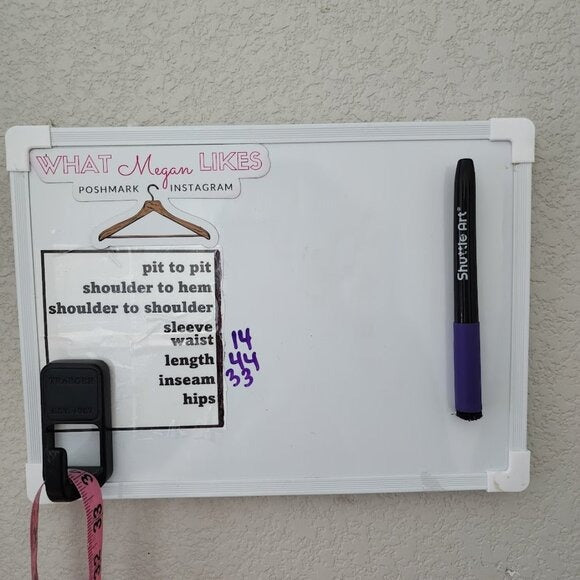 WHAT Megan LIKES
POSHMARK INSTAGRAM
pit to pit
shoulder to hem
shoulder to shoulder
sleeve
waist 14
length 44
inseam 33
hips
TRAEGER
EST. 1987
Shuttle Art
33